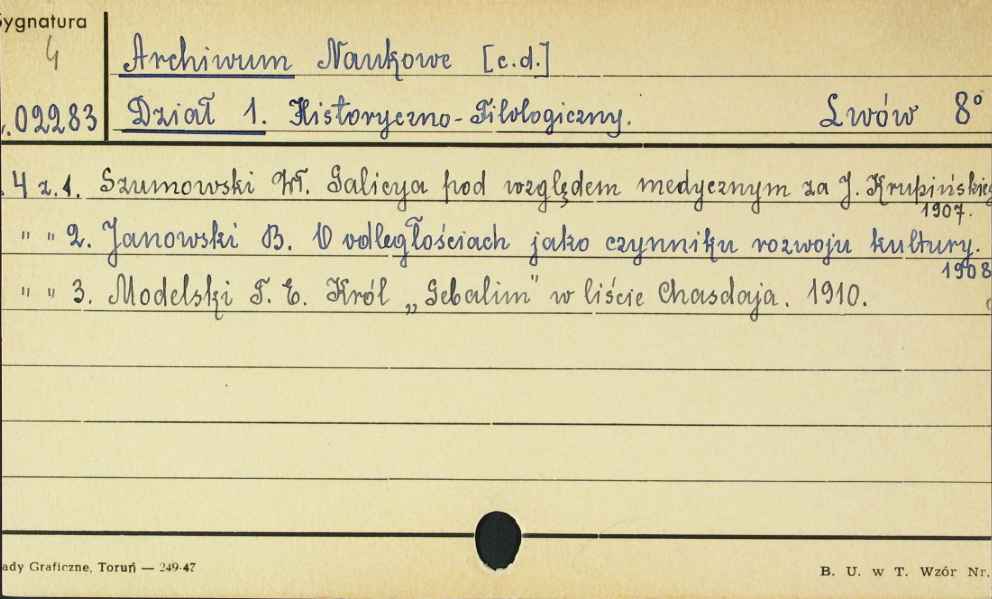 Sygnatura
4
Archiwum Naukowe [c.d.]
02283 Dział 1. Historyczno-Filologiczny. Lwów 8°
4 z.1. Szumowski Wł. Galicya pod względem medycznym za J. Krupińskieg
1907.
" " 2. Janowski B. O odległościach jako czynniku rozwoju kultury.
1908
" " 3. Modelski T. E. Król „Gebalim" w liście Chasdaja. 1910.
ady Graficzne, Toruń — 249-47
B. U. w T. Wzór Nr.